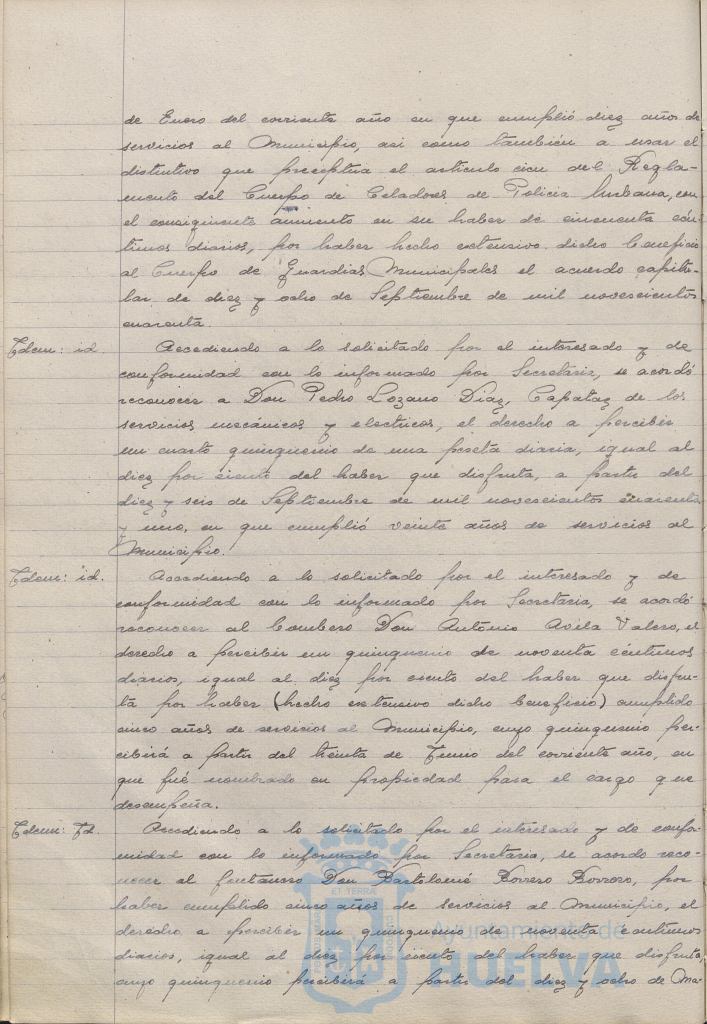 de Enero del corriente año en que cumplió diez años de
servicios al Municipio, asi como también a usar el
distintivo que preceptua el articulo cien del Regla-
mento del Cuerpo de Celadores de Policia Urbana, con
el consiguiente aumento en su haber de cincuenta cén-
timos diarios, por haber hecho extensivo dicho beneficio
al Cuerpo de Guardias Municipales el acuerdo capitu-
lar de diez y ocho de Septiembre de mil novescientos
cuarenta.
Idem: id.
Accediendo a lo solicitado por el interesado y de
conformidad con lo informado por Secretaria, se acordó
reconocer a Don Pedro Lozano Diaz, Capataz de los
servicios mecánicos y electricos, el derecho a percibir
un cuarto quinquenio de una peseta diaria, igual al
diez por ciento del haber que disfruta, a partir del
diez y seis de Septiembre de mil novescientos cuarenta
y uno, en que cumplió veinte años de servicios al
Municipio.
Idem: id.
Accediendo a lo solicitado por el interesado y de
conformidad con lo informado por Secretaria, se acordó
reconocer al bombero Don António Avila Valero, el
derecho a percibir un quinquenio de noventa céntimos
diarios, igual al diez por ciento del haber que disfru-
ta por haber (hecho extensivo dicho beneficio) cumplido
cinco años de servicios al Municipio, cuyo quinquenio per-
cibirá a partir del treinta de Junio del corriente año, en
que fué nombrado en propiedad para el cargo que
desempeña.
Idem: Id.
Accediendo a lo solicitado por el interesado y de confor-
midad con lo informado por Secretaria, se acordo reco-
nocer al fontanero Don Bartolomé Borrero Borrero, por
haber cumplido cinco años de servicios al Municipio, el
derecho a percibir un quinquenio de noventa céntimos
diarios, igual al diez por ciento del haber que disfruta,
cuyo quinquenio percibirá a partir del diez y ocho de Ma-
ET TERRA
PORTUS MARIS
CUSTODIA
Ayuntamiento de
HUELVA